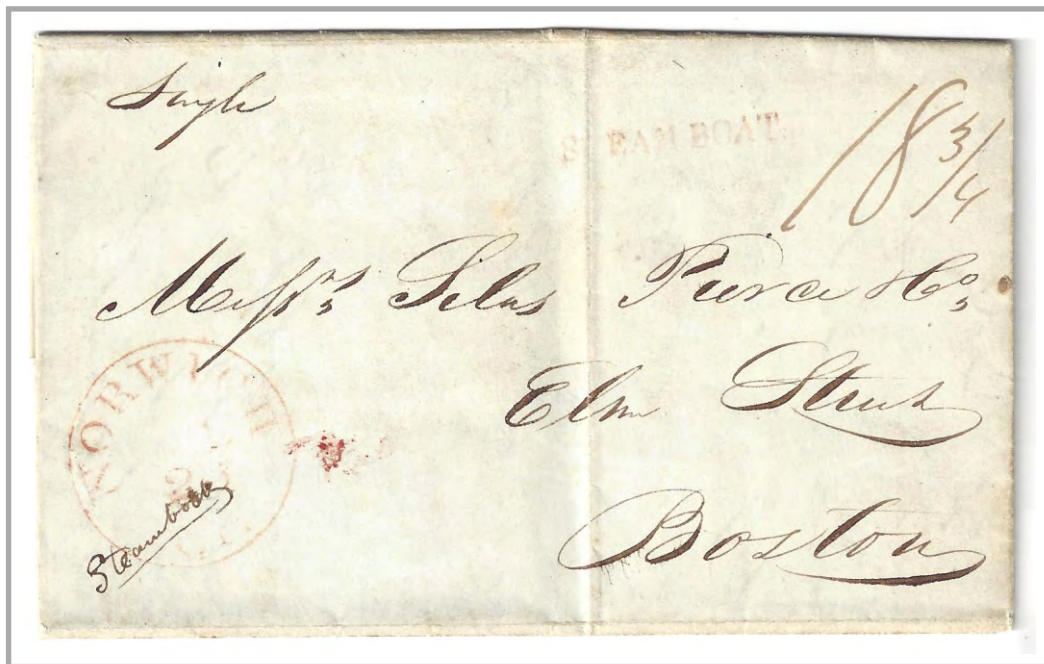 Single
STEAM BOAT.
18 3/4
Messrs Silas Pierce & Co,
Elm Street
Boston
NORWICH
Steamboat